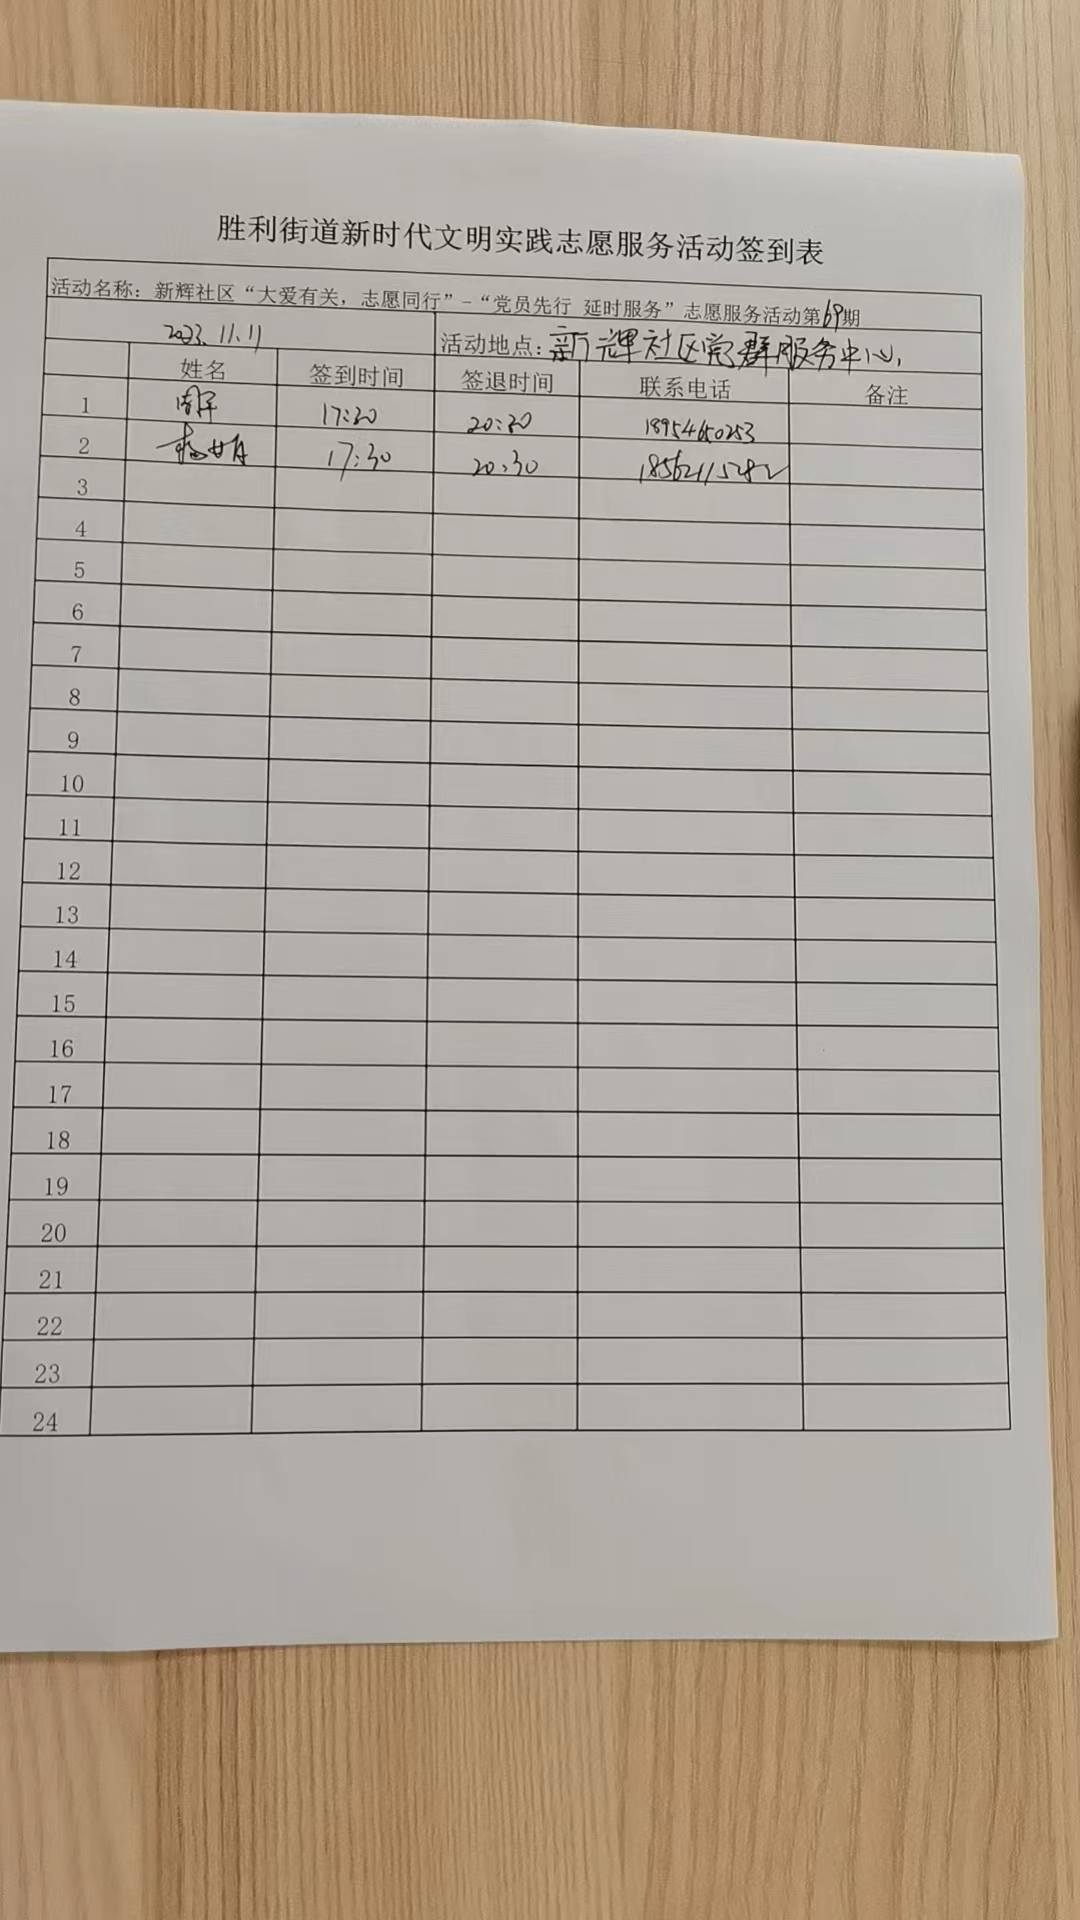 胜利街道新时代文明实践志愿服务活动签到表
活动名称：新辉社区“大爱有关，志愿同行”-“党员先行 延时服务”志愿服务活动第69期
2023.11.11 活动地点：新辉社区党群服务中心
姓名 签到时间 签退时间 联系电话 备注
1 17:30 20:30 18954650253
2 17:30 20:30
3
4
5
6
7
8
9
10
11
12
13
14
15
16
17
18
19
20
21
22
23
24